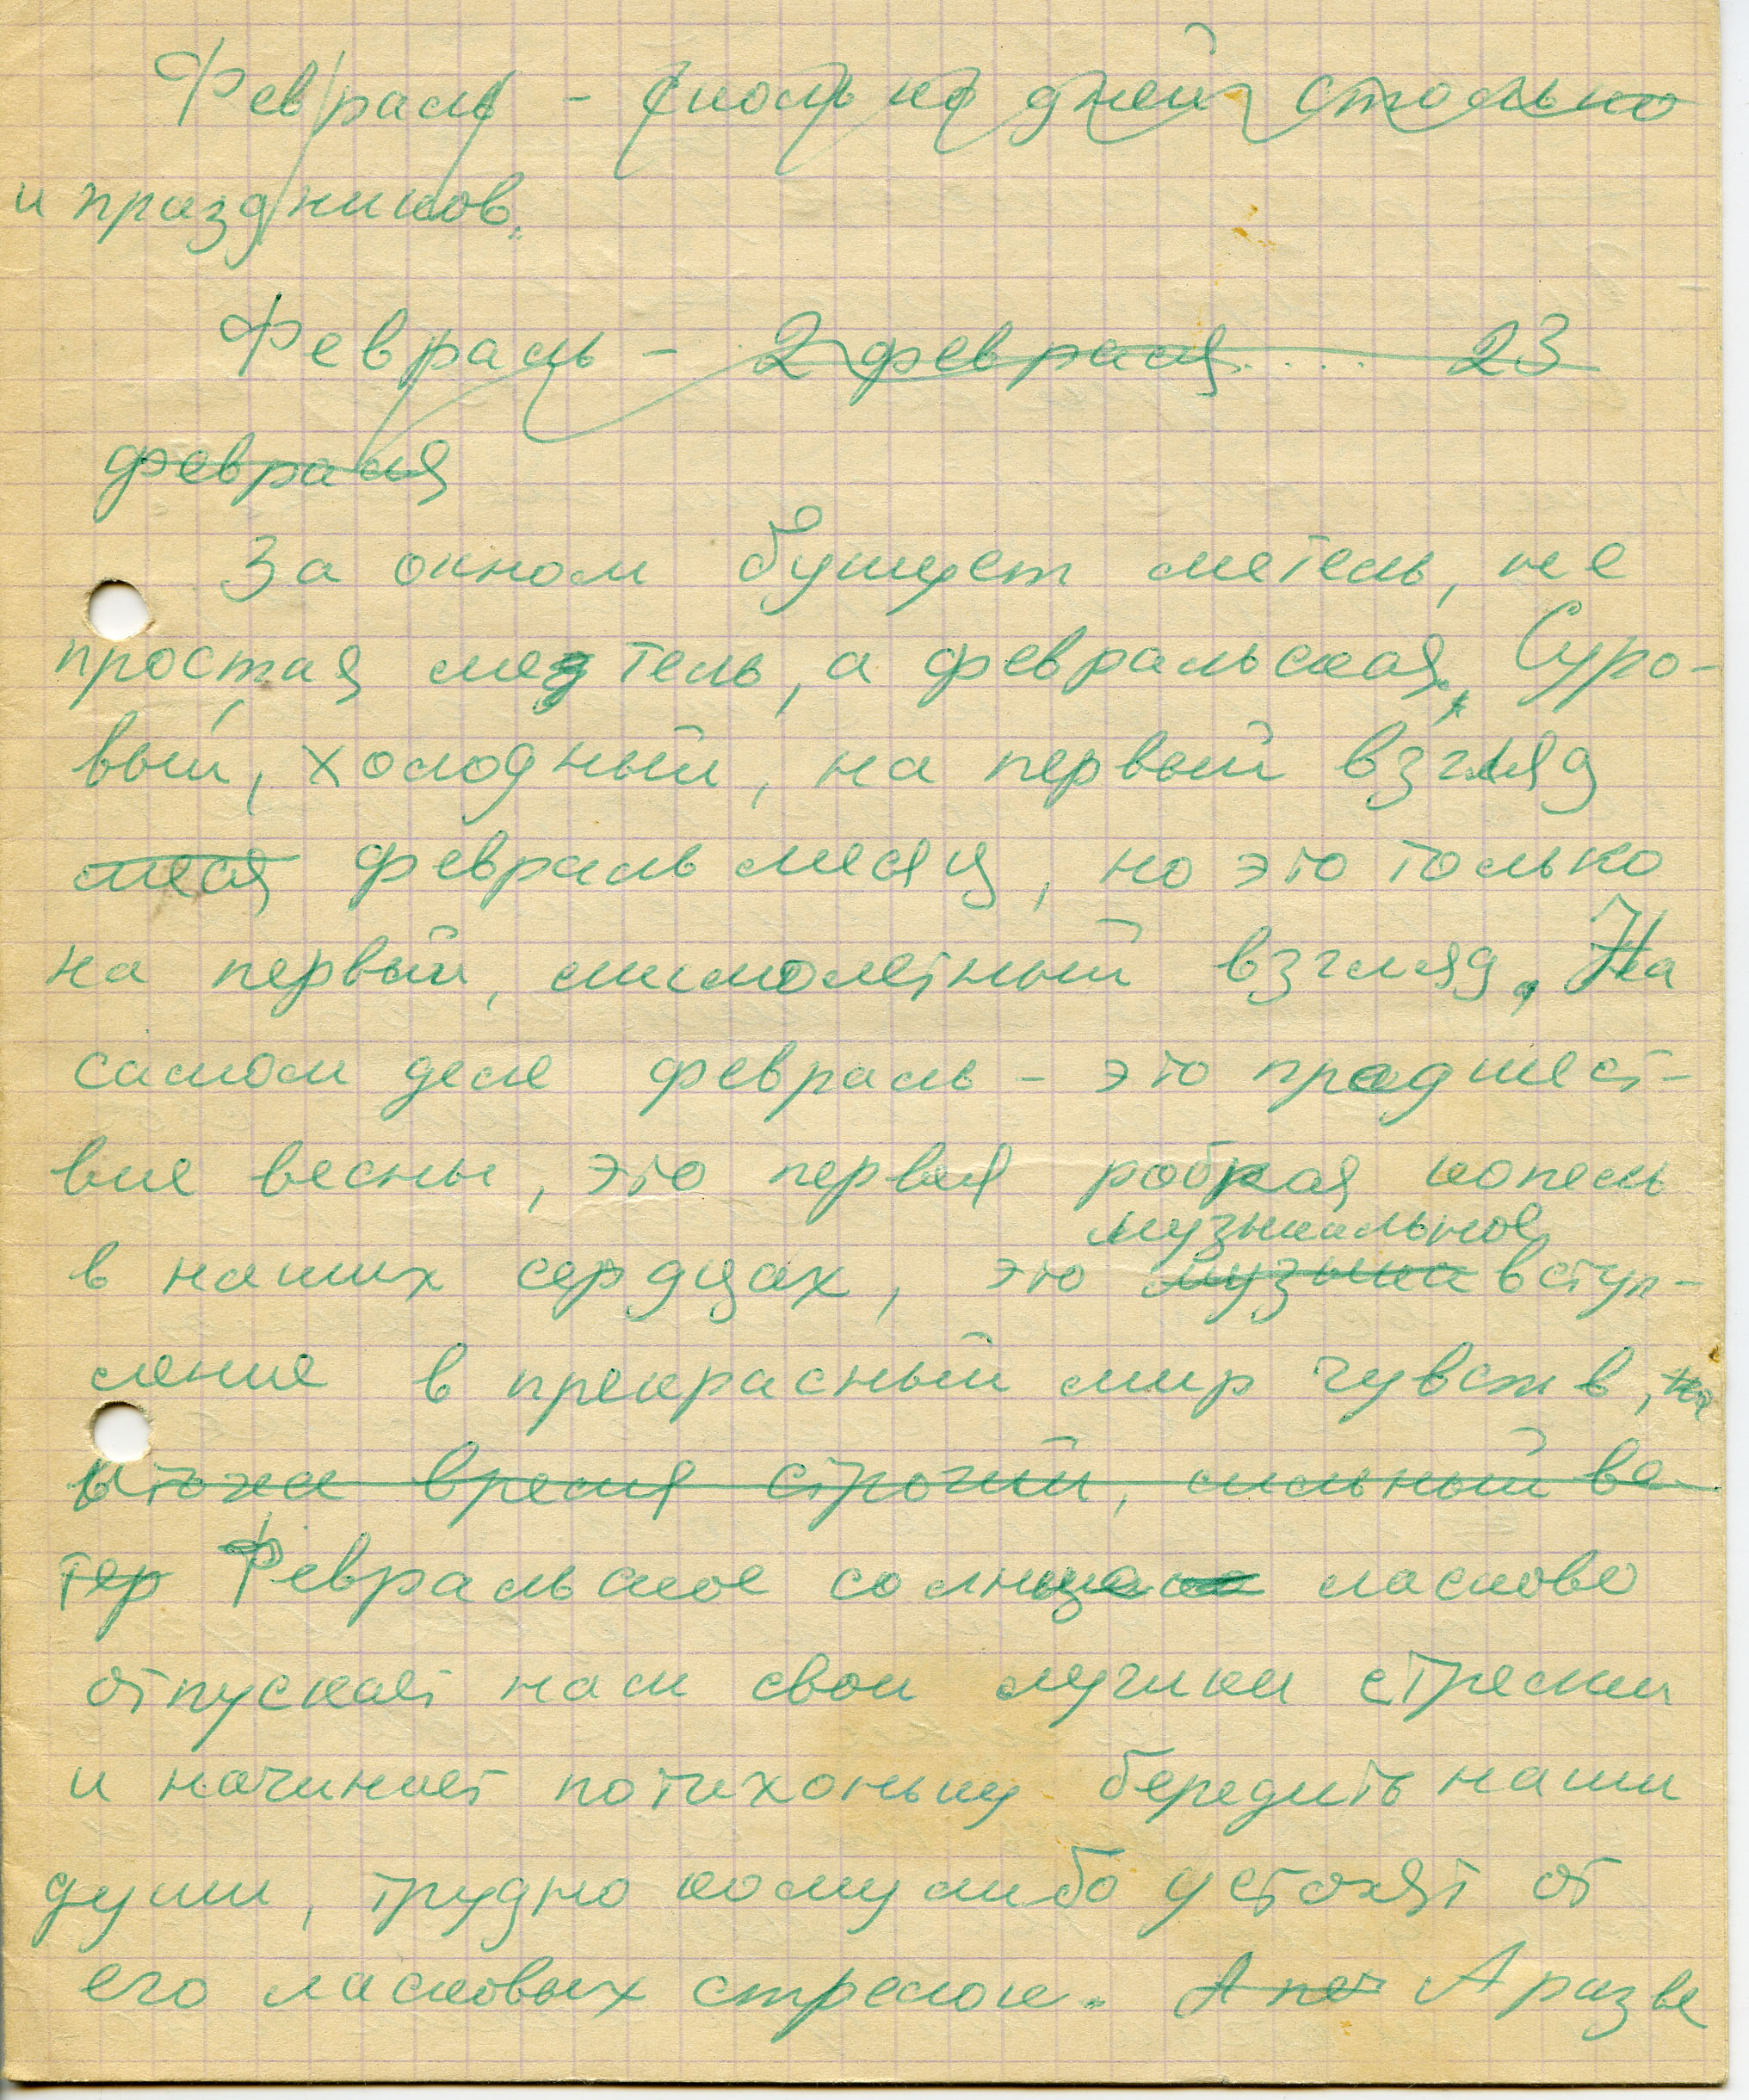 Февраль - сколько дней столько
и праздников.
Февраль - 2 февраля..... 23
февраля
За окном бушует метель, не
простая метель, а февральская. Суро-
вый, холодный, на первый взгляд
меся февраль месяц, но это только
на первый, мимолётный взгляд. На
самом деле февраль - это предшест-
вие весны, это первая робкая копель
музыкальное
в наших сердцах, это музыка вступ-
ление в прекрасный мир чувств,
и тоже время строгий, сильный ве-
тер Февральское солнце ласково
отпускает нам свои лучики стрелки
и начинает потихоньку бередить наши
души, трудно кому либо устоять от
его ласковых стрелок. А нет А разве